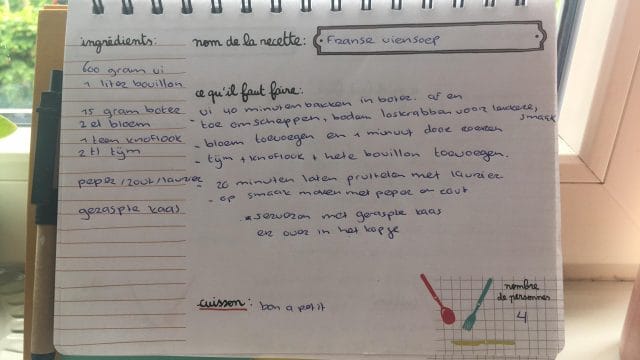 ingrédients:
600 gram ui
1 liter bouillon
15 gram boter
2 el bloem
1 teen knoflook
2 tl tijm
peper/zout/laurier
geraspte kaas
nom de la recette: Franse uiensoep
ce qu'il faut faire:
- ui 40 minuten bakken in boter. af en
toe omscheppen, bodem loskrabben voor lekkere,
smaak
- bloem toevoegen en 1 minuut door roeren
- tijm + knoflook + hete bouillon toevoegen.
- 20 minuten laten pruttelen met laurier
- op smaak maken met peper en zout
* serveren met geraspte kaas
er over in het kopje
cuisson: bon a petit
nombre
de personnes
4